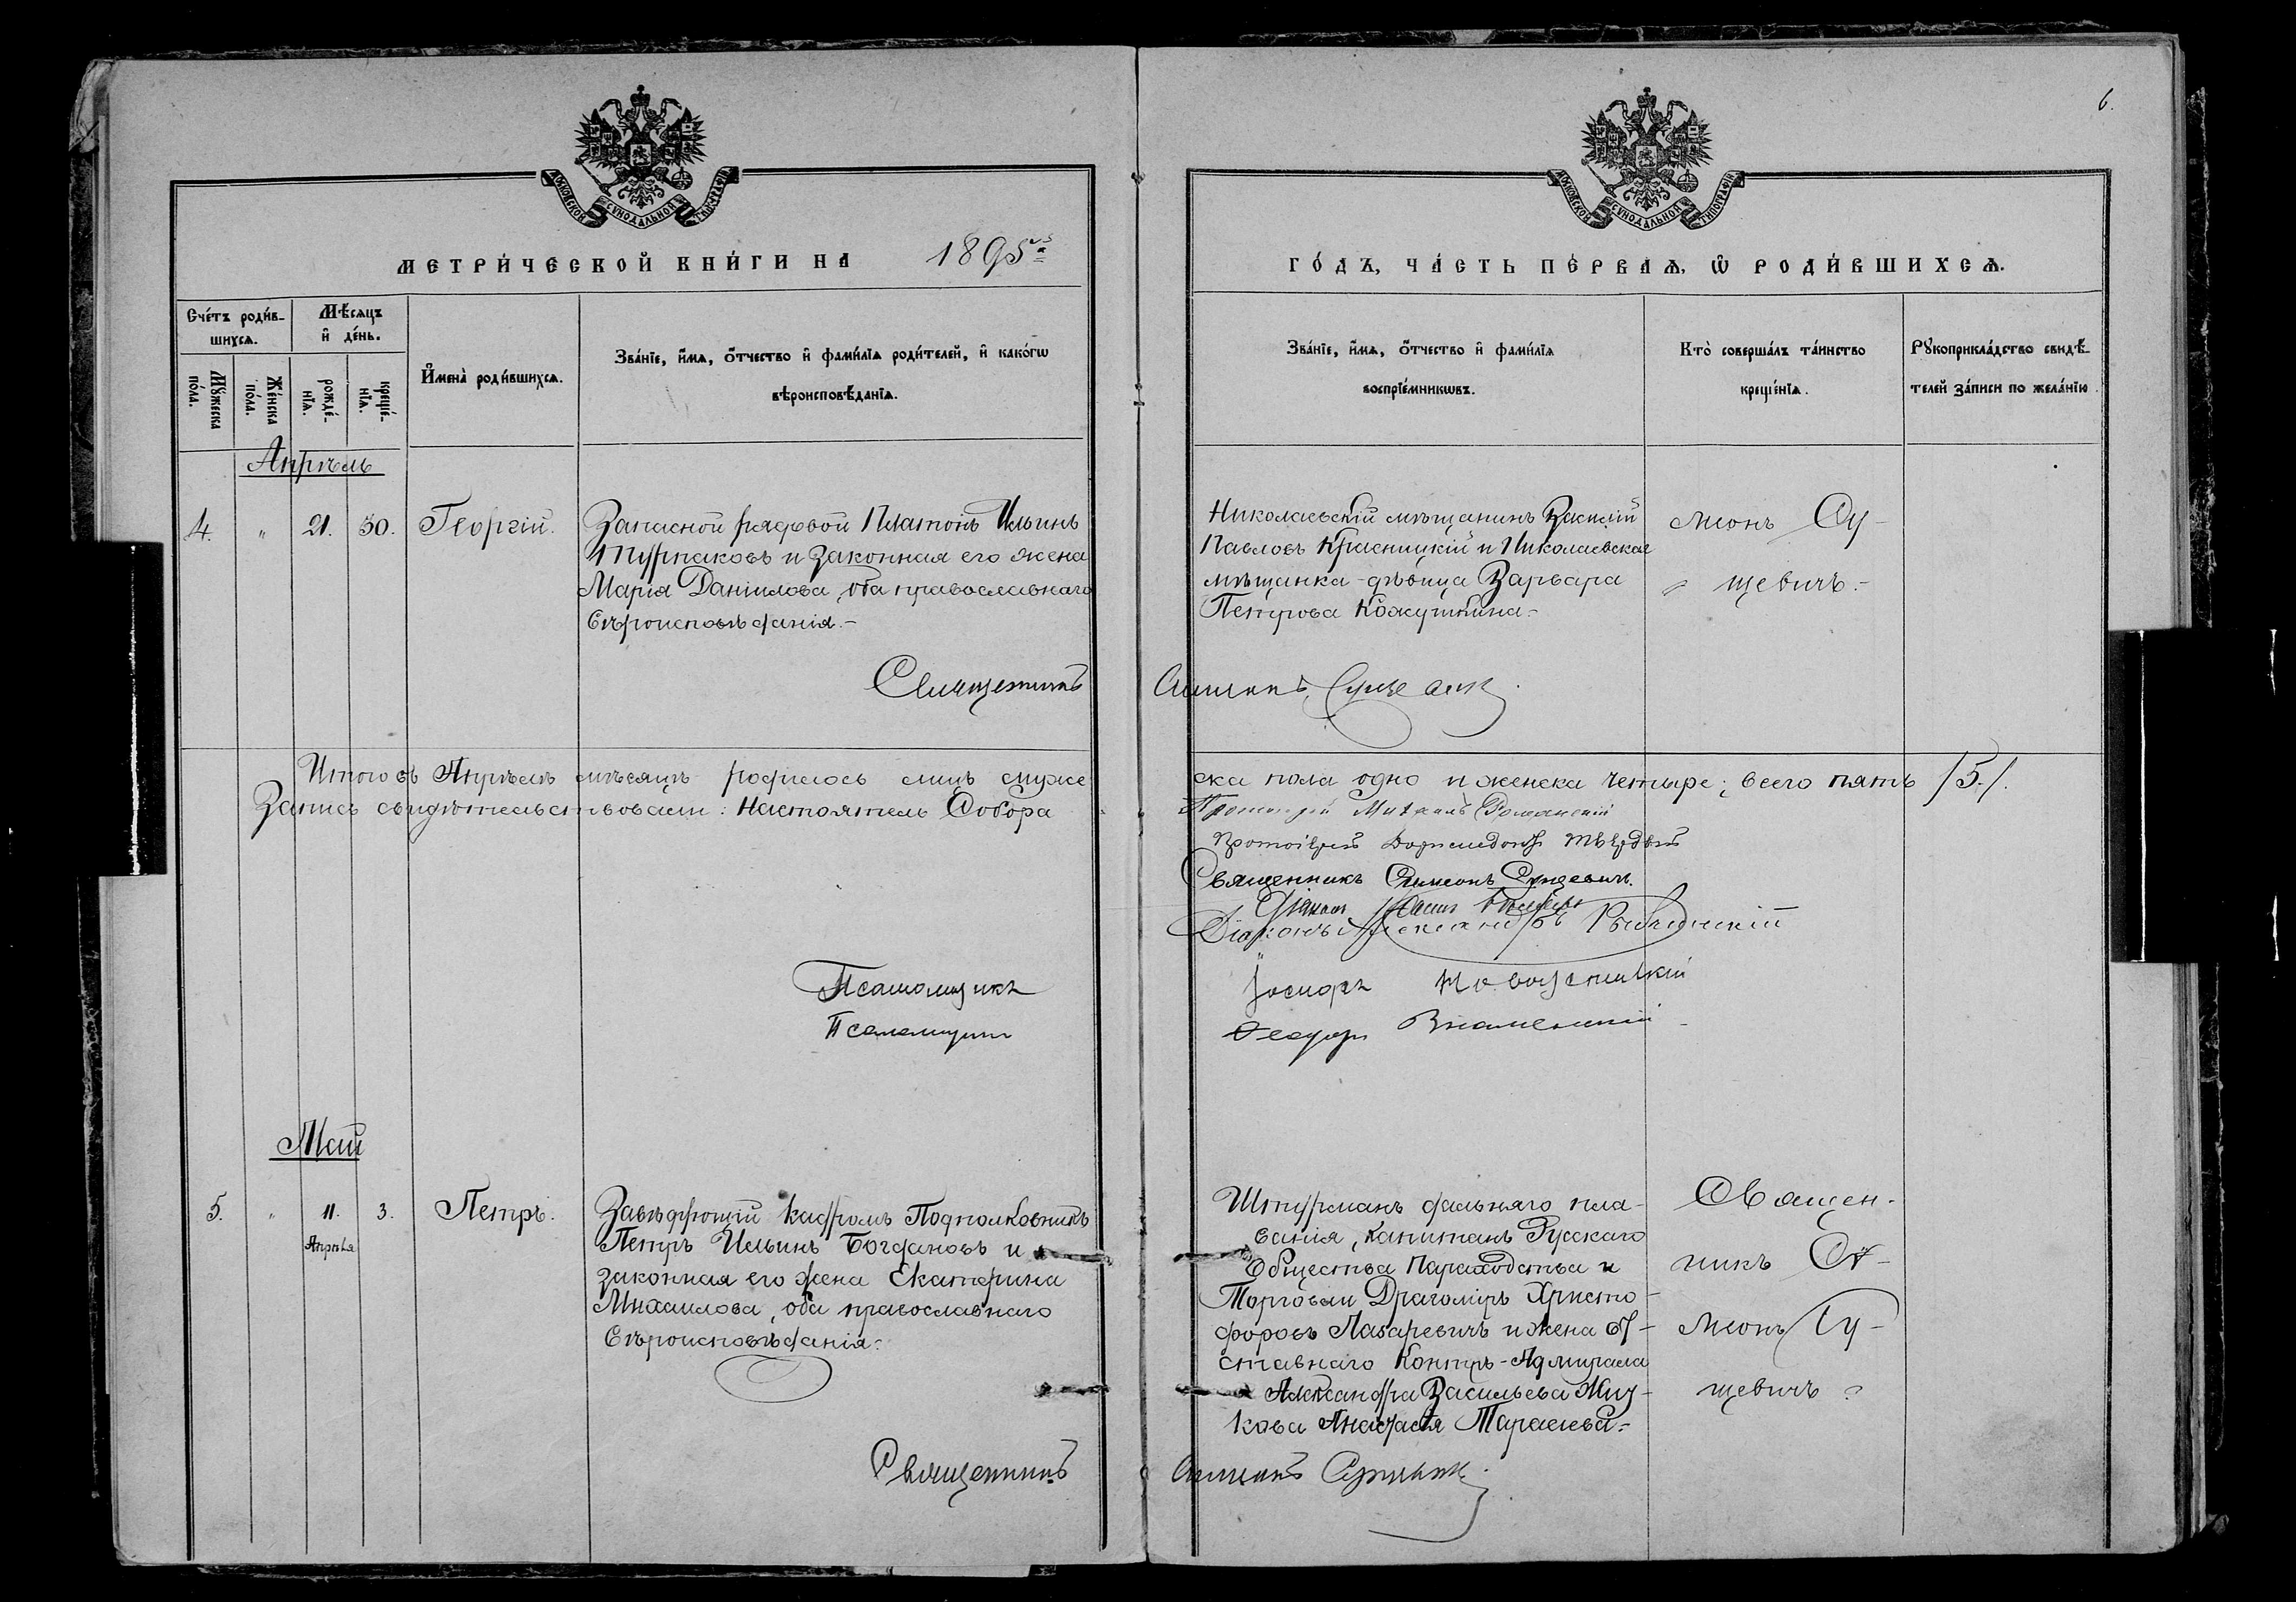 6.
МОСКОВСКОЙ СУНОДАЛЬНОЙ ТИПОГРАФІИ
МОСКОВСКОЙ СУНОДАЛЬНОЙ ТИПОГРАФІИ
МЕТРИ́ЧЕСКОЙ КНИ́ГИ НА 1895й
ГО́ДЪ, ЧА́СТЬ ПЕ́РВАѦ, Ѡ РОДИ́ВШИХСѦ.
Сче́тъ роди́в-
шихсѧ.
Мѣ́сѧцъ
и҆ де́нь.
Мꙋ́жеска
по́ла.
Же́нска
по́ла.
рожде́-
нїѧ.
креще́-
нїѧ.
И҆мена̀ роди́вшихсѧ.
Зва́нїе, и҆́мѧ, ѻ҆́тчество и҆ фами́лїѧ роди́телей, и҆ како́гѡ
вѣроисповѣ́данїѧ.
Зва́нїе, и҆́мѧ, ѻ҆́тчество и҆ фами́лїѧ
воспрїе́мникѡвъ.
Кто̀ соверша́лъ та́инство
креще́нїѧ.
Рꙋкоприкла́дство свидѣ́-
телей за́писи по жела́нїю.
Апрѣль
4. " 21. 30. Георгій.
Запасной рядовой Платонъ Ильинъ
и законная его жена
Марія Данiилова, оба православнаго
вѣроисповѣданія.-
Николаевскій мѣщанинъ Василій
Павловъ Красницкій и Николаевская
мѣщанка-дѣвица Варвара
Петрова Кожушкина-
меонъ Су-
" щевичъ.-
Священникъ Симеонъ Сущевичъ
Итого въ Апрѣлѣ мѣсяцѣ родилось лицъ муже
ска пола одно и женска четыре; всего пять /5./.
Запись свидѣтельствовали: Настоятель Собора
Протоіерей Михаилъ
Протоіерей
Священникъ Симеонъ Сущевичъ.
Діаконъ
Діаконъ Александръ
Псаломщикъ Іосифъ
Псаломщикъ Феодоръ Знаменскій
Май
5. " 11. 3. Петръ.
Апрѣля
Завѣдующій кадромъ Подполковникъ
Петръ Ильинъ Богдановъ и
законная его жена Екатерина
Михаилова, оба православнаго
вѣроисповѣданія.-
Штурманъ дальняго пла-
ванія, Капитанъ Русскаго
Общества Пароходства и
Торговли Драгоміръ Христо-
форовъ Лазаревичъ и жена От-
ставнаго Контръ-Адмирала
Александра Васильева Жид-
кова Анастасія Тарасьева.-
Священ-
никъ Си-
меонъ Су-
щевичъ
Священникъ Симеонъ Сущевичъ